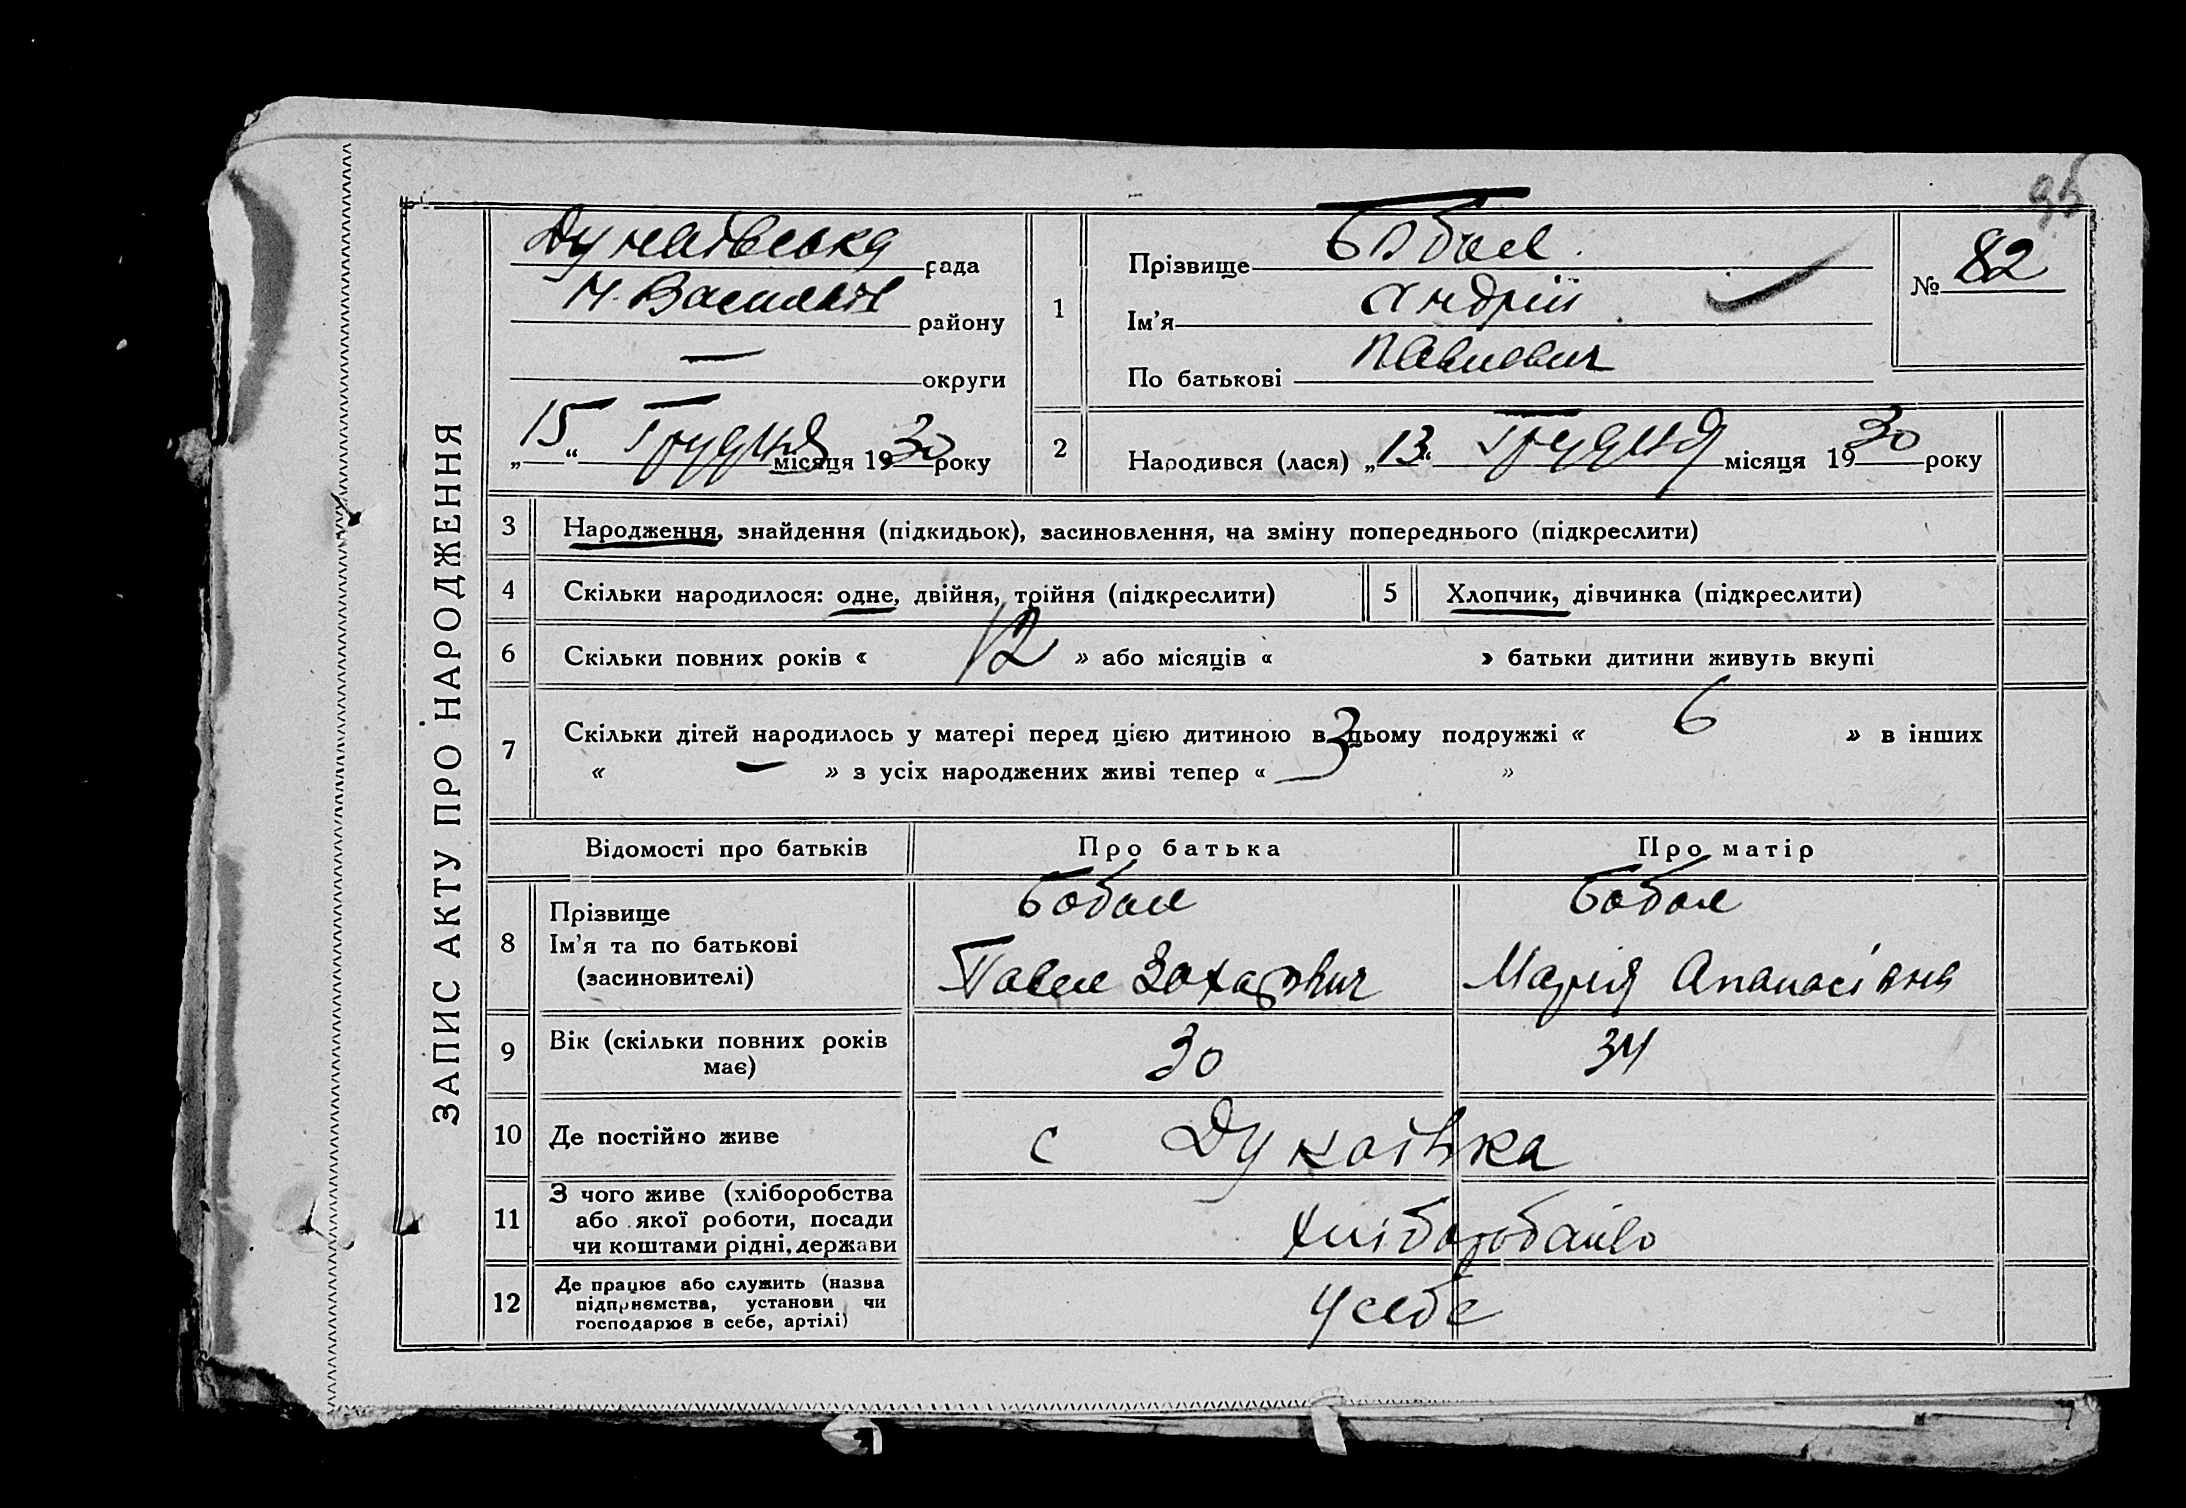 95
ЗАПИС АКТУ ПРО НАРОДЖЕННЯ
Дунаївська рада
Н. Василів району
— округи
„15“ Грудня місяця 1930 року
1
Прізвище Бобал
Ім’я Андрій
По батькові Павлович
№ 82
2
Народився (лася) „13“ Грудня місяця 1930 року
3 Народження, знайдення (підкидьок), засиновлення, на зміну попереднього (підкреслити)
4 Скільки народилося: одне, двійня, трійня (підкреслити)
5 Хлопчик, дівчинка (підкреслити)
6 Скільки повних років « 12 » або місяців « » батьки дитини живуть вкупі
7 Скільки дітей народилось у матері перед цією дитиною в цьому подружжі « 6 » в інших
« — » з усіх народжених живі тепер « 3 »
Відомості про батьків Про батька Про матір
8 Прізвище Бобал Бобал
Ім’я та по батькові Павел Захарович Марія Апанасівна
(засиновителі)
9 Вік (скільки повних років 30 34
має)
10 Де постійно живе с Дунаївка
11 З чого живе (хліборобства
або якої роботи, посади
чи коштами рідні, держави
хліборобство
12 Де працює або служить (назва
підприємства, установи чи
господарює в себе, артілі)
у себе